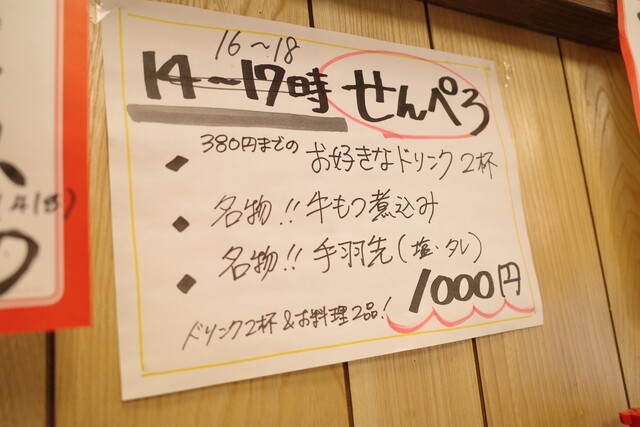 16〜18
14〜17時 せんべろ
◆ 380円までの お好きなドリンク2杯
◆ 名物!! 牛もつ煮込み
◆ 名物!! 手羽先(塩・タレ)
1000円
ドリンク2杯&お料理2品!